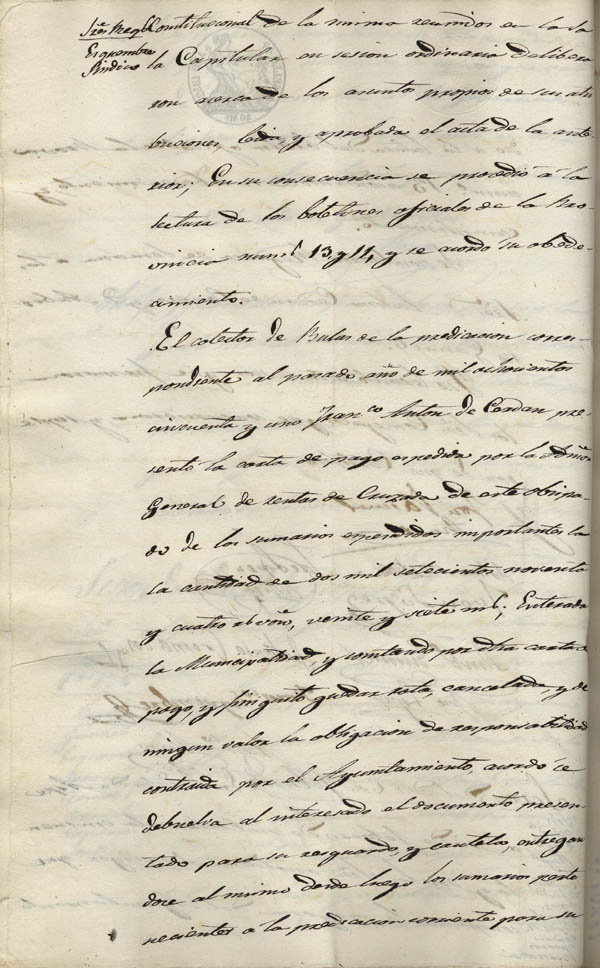 Esquembre
Síndico
Constitucional de la misma reunidos en la Sa
la Capitular en sesion ordinaria delibera
ron acerca de los asuntos propios de sus atri
buciones, leida, y aprobada el acta de la ante
rior; En su consecuencia se procedió á la
lectura de los boletines oficiales de la Pro
vincia num.s 13, y 14, y se acordó su obede-
cimiento.
El colector de Bulas de la predicacion corres-
pondiente al pasado año de mil ochocientos
cincuenta y uno Fran.co Anton de Cerdan pre
sentó la carta de pago espedida por la Admon
General de rentas de Cruzada de este Obispa-
do de los sumarios espendidos importantes la
la cantidad de dos mil setecientos noventa
y cuatro r.s von, veinte y siete m.s; Enterada
la Municipalidad, y constando por dha carta de
pago, y finiquito quedar rota, cancelada, y de
ningun valor la obligacion de responsabilidad
contraida por el Ayuntamiento, acordó se
debuelva al interesado el documento presen-
tado para su resguardo y cautela, entregan
dose al mismo desde luego los sumarios perte
necientes a la predicacion corriente para su